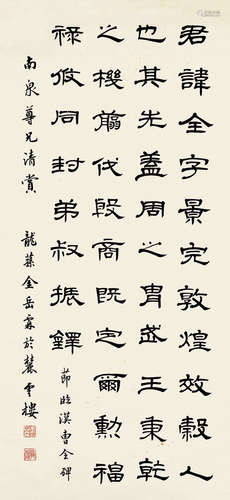 君諱全字景完敦煌效穀人
也其先蓋周之胄武王秉乾
之機翦伐殷商既定爾勳福
祿攸同封弟叔振鐸
節臨漢曹全碑
南泉尊兄清賞 龍蓀金岳霖於樓